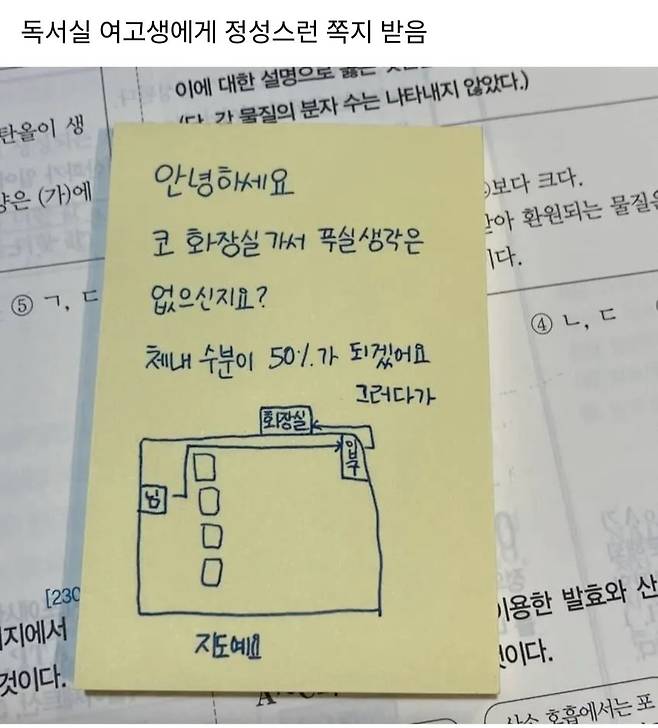 독서실 여고생에게 정성스런 쪽지 받음
이에 대한 설명으로 옳은
(단, 각 물질의 분자 수는 나타내지 않았다.)
탄올이 생
양은 (가)에
⑤ ㄱ, ㄷ
보다 크다.
환원되는 물질은
이다.
④ ㄴ, ㄷ
안녕하세요
코 화장실가서 푸실생각은
없으신지요?
체내 수분이 50%가 되겠어요
그러다가
화장실
입구
님
지도예요
[230
지에서
것이다.
이용한 발효와 산
것이다.
산소 호흡에서는 포